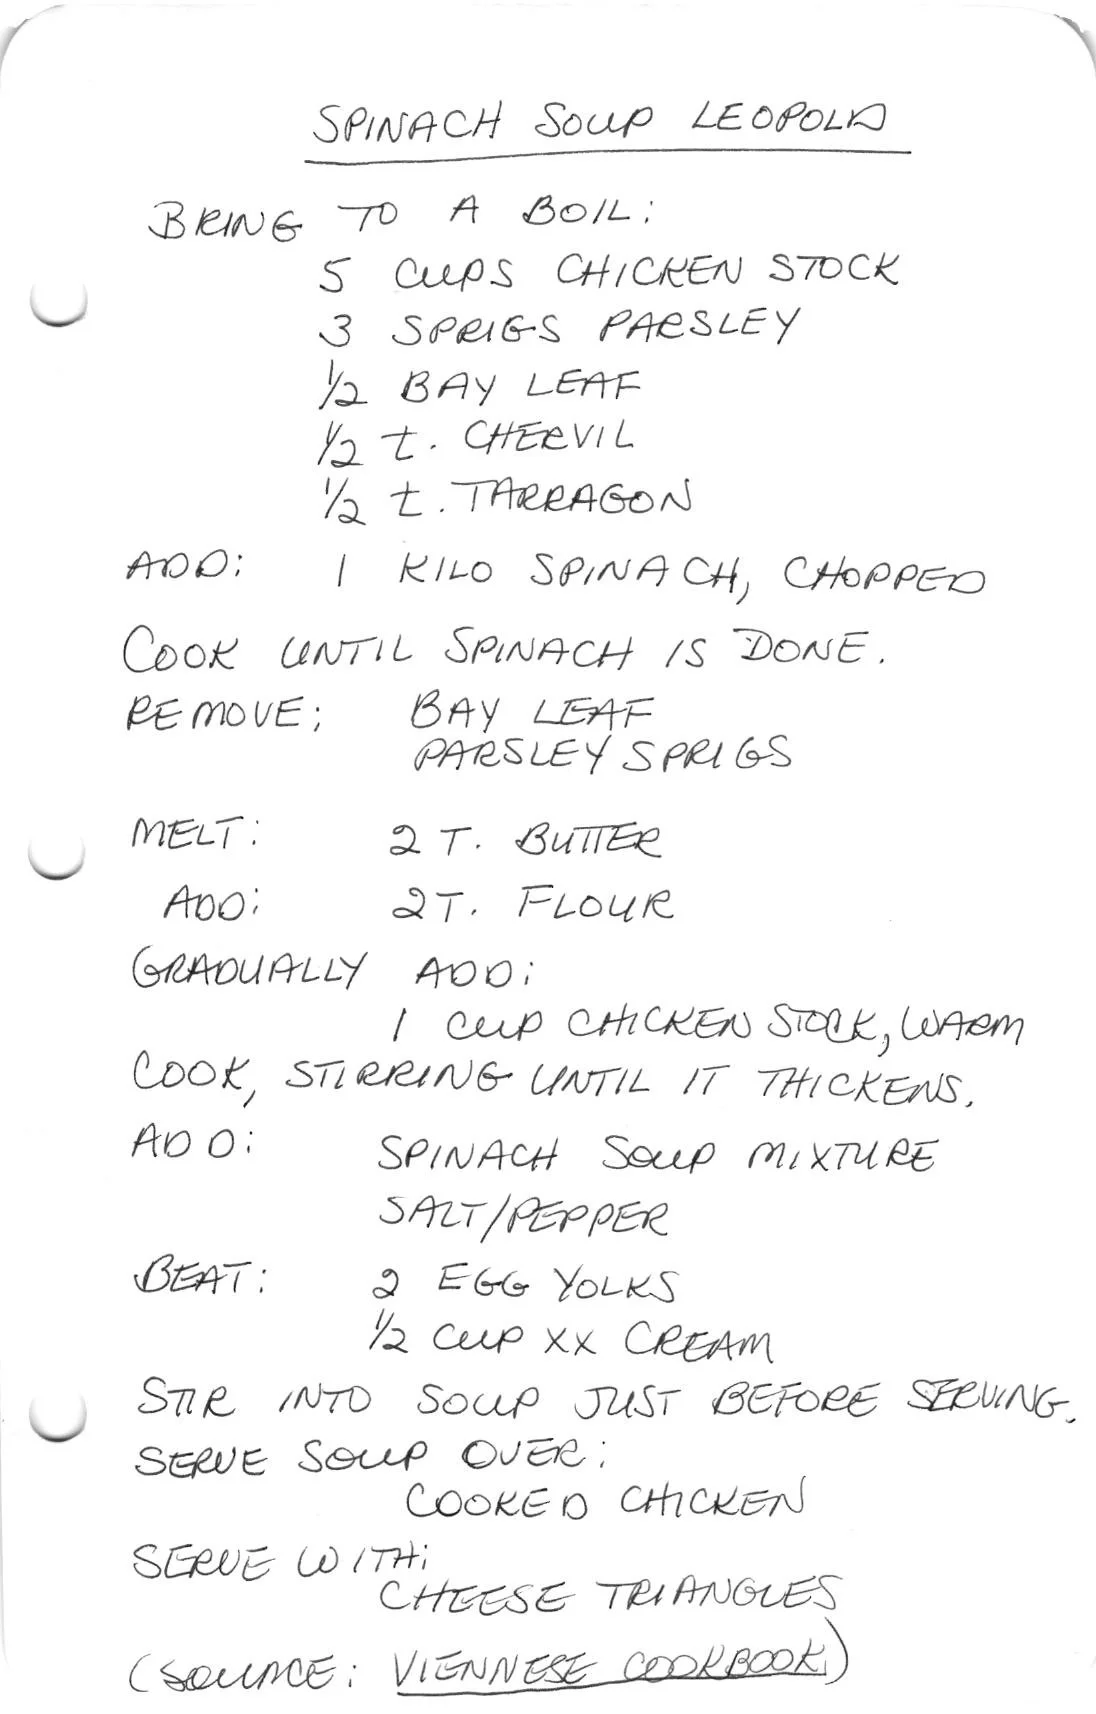 SPINACH SOUP LEOPOLD
BRING TO A BOIL:
5 CUPS CHICKEN STOCK
3 SPRIGS PARSLEY
1/2 BAY LEAF
1/2 t. CHERVIL
1/2 t. TARRAGON
ADD: 1 KILO SPINACH, CHOPPED
COOK UNTIL SPINACH IS DONE.
REMOVE: BAY LEAF
PARSLEY SPRIGS
MELT: 2 T. BUTTER
ADD: 2 T. FLOUR
GRADUALLY ADD:
1 CUP CHICKEN STOCK, WARM
COOK, STIRRING UNTIL IT THICKENS.
ADD: SPINACH SOUP MIXTURE
SALT/PEPPER
BEAT: 2 EGG YOLKS
1/2 CUP XX CREAM
STIR INTO SOUP JUST BEFORE SERVING.
SERVE SOUP OVER:
COOKED CHICKEN
SERVE WITH:
CHEESE TRIANGLES
(SOURCE: VIENNESE COOKBOOK)